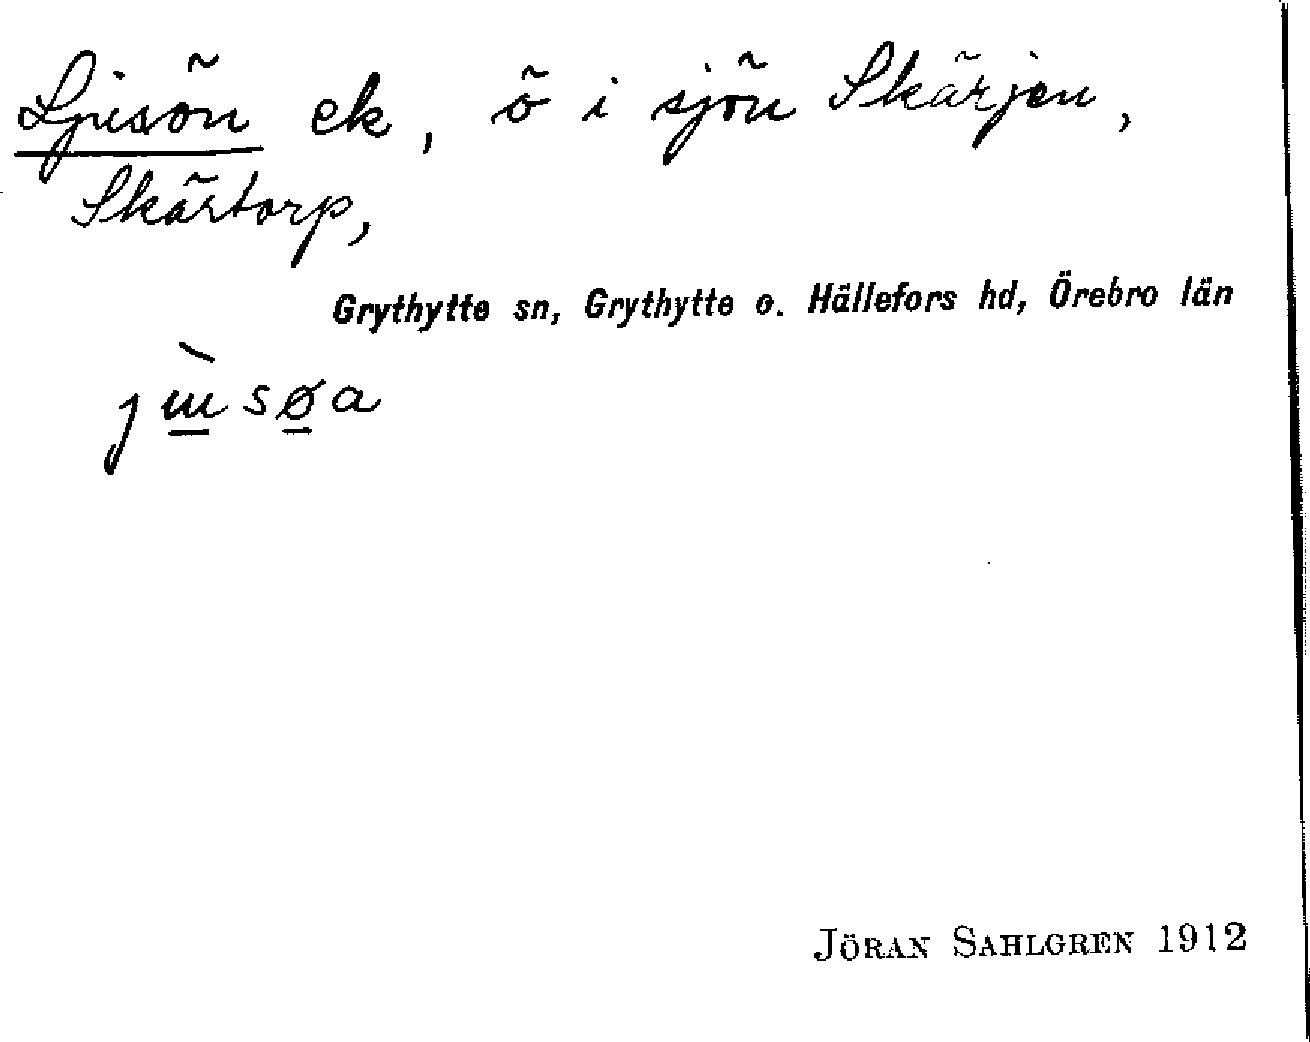 Ljusön ek, ö i sjön Skärjen,
Skärtorp,
Grythytte sn, Grythytte o. Hällefors hd, Örebro län
jɯ̲̀sø̲a
JÖRAN SAHLGREN 1912